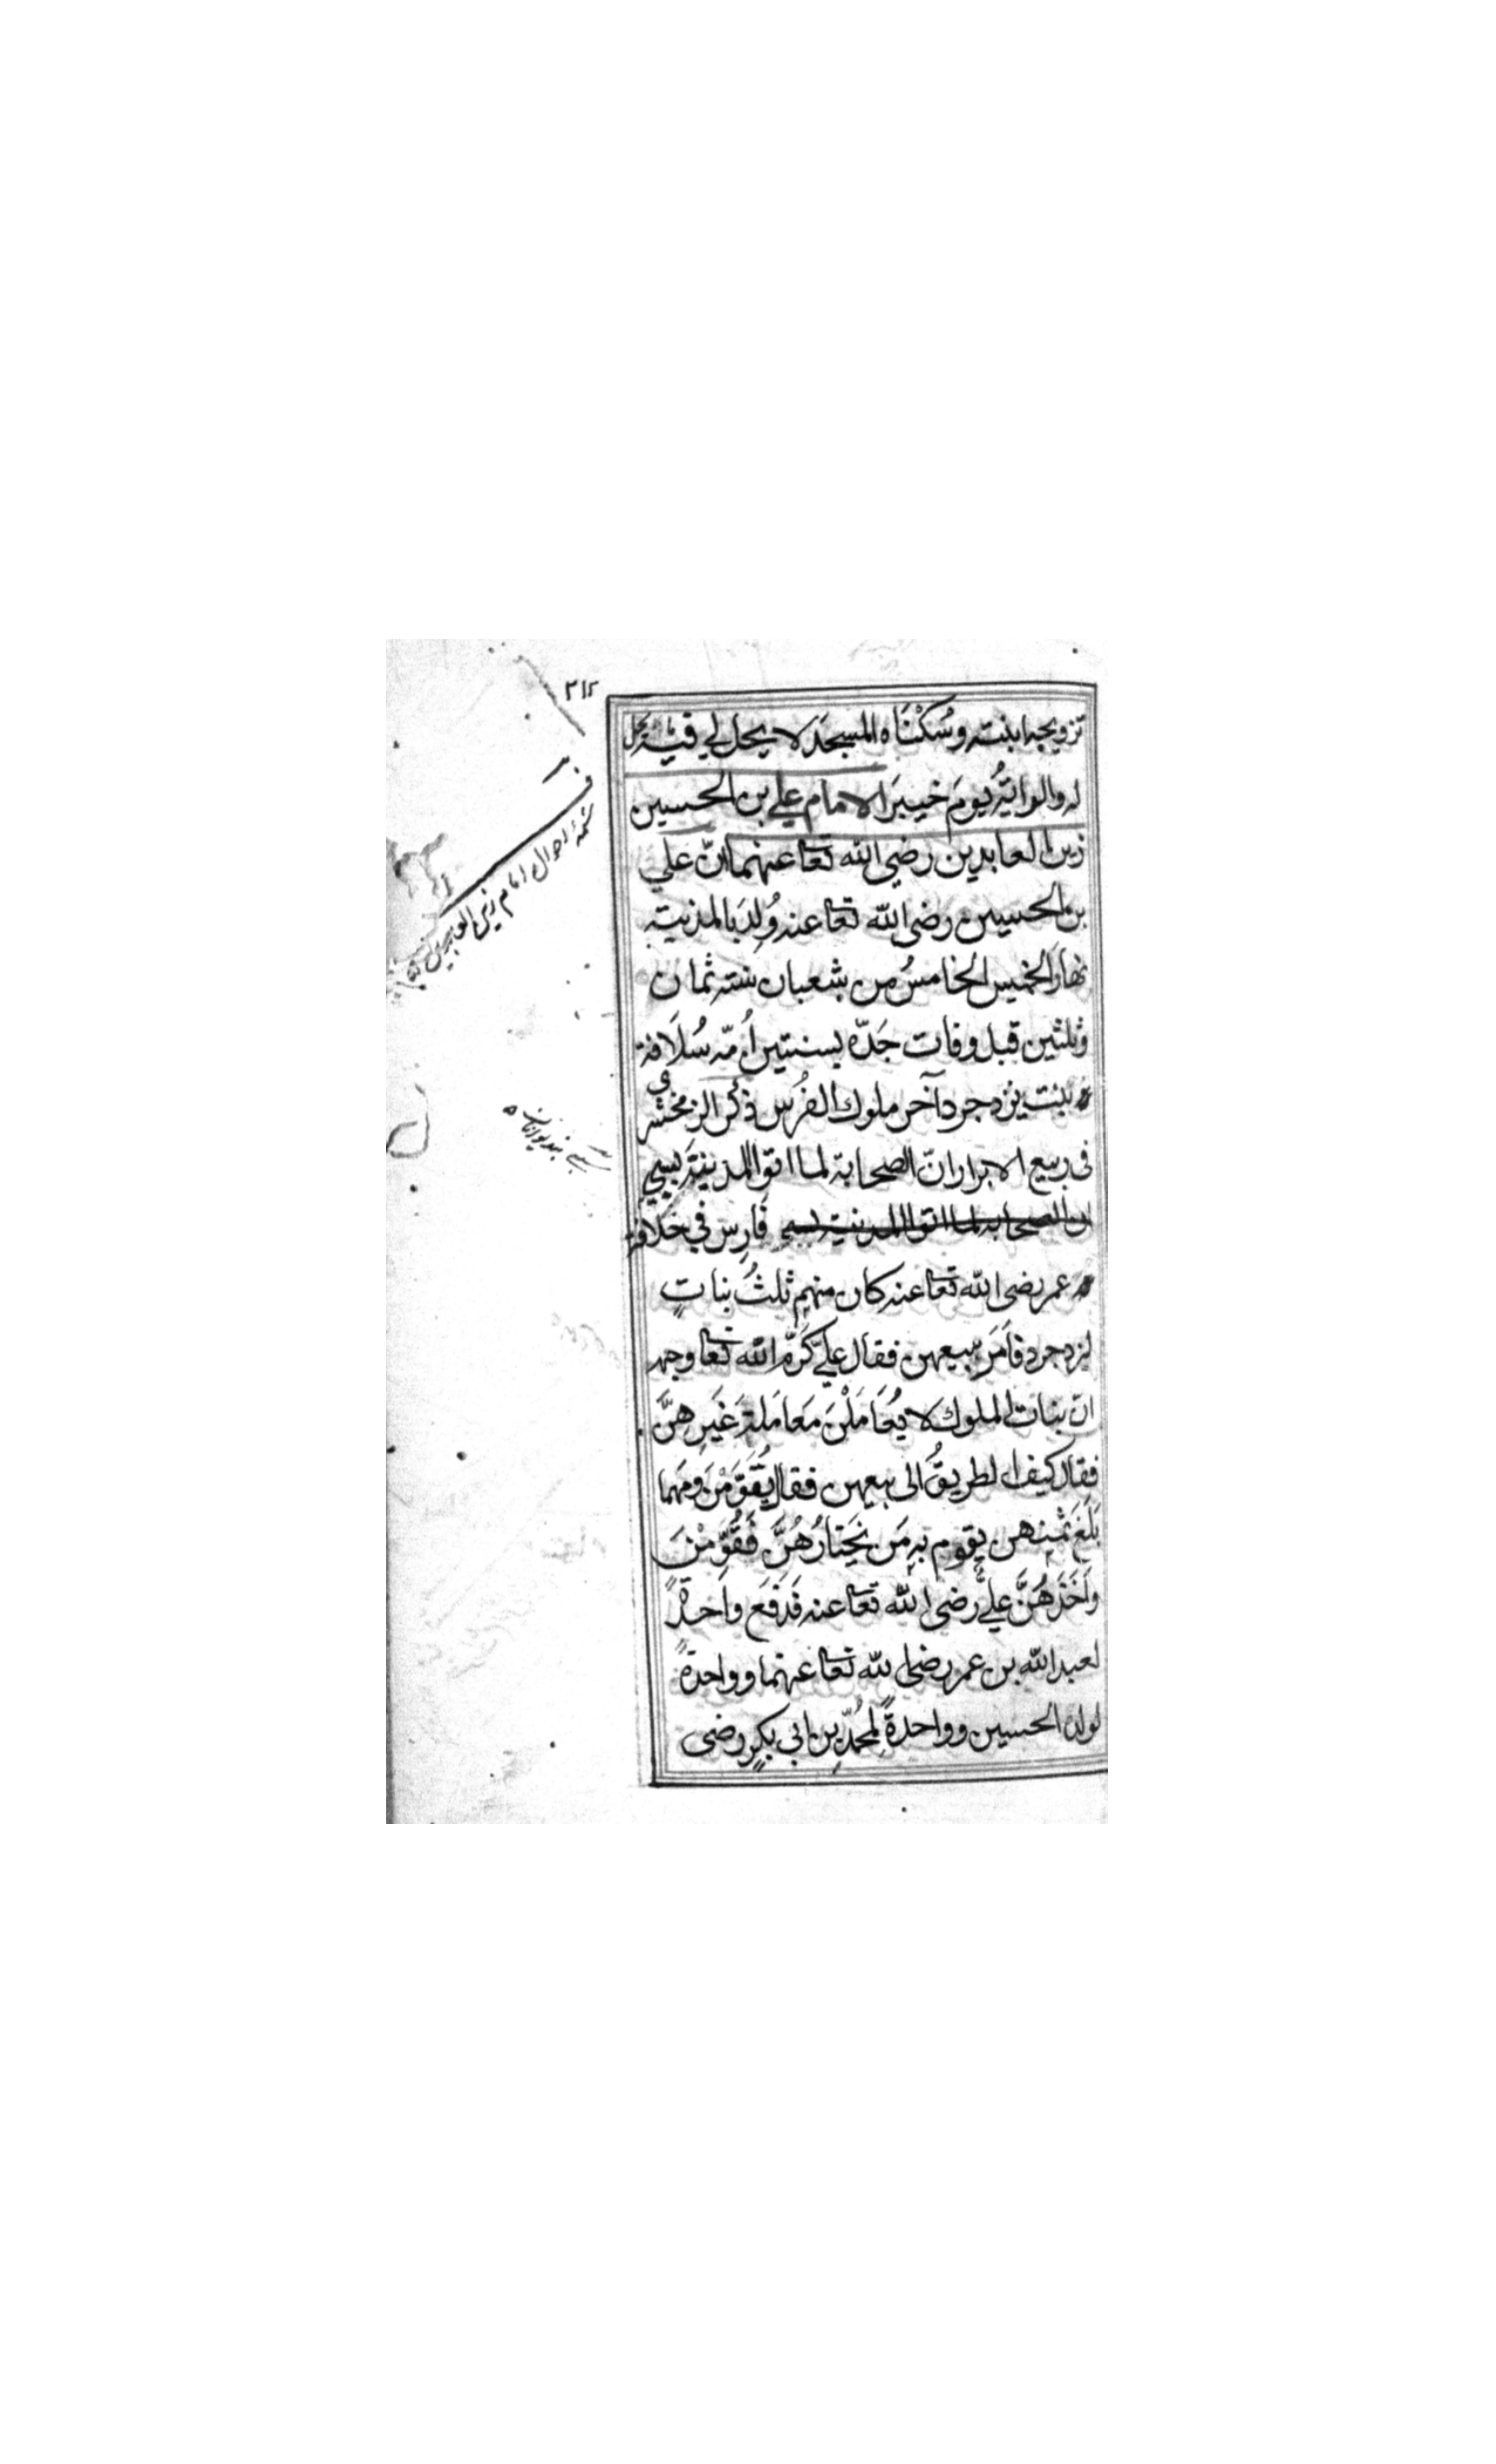 ٣١٢
تزويجه ابنته وسُكْنَاه المسجدَ لا يحل لي فيه يحل
له والراية يومَ خيبرَ الامام علي بن الحسين
زين العابدين رضي الله تعا عنهما انّ علي
بن الحسين رضي الله تعا عنه وُلِدَ بالمدينة
نهارَ الخميس الخامسُ من شعبان سنة ثمان
وثلثين قبل وفات جَدّه بسنتين أُمّه سُلَافة
بنت يزدجرد آخر ملوك الفُرْس ذكر الزمخشري
في ربيع الابرار انّ الصحابة لما اتوا المدينة بسبي
ان الصحابه لما اتوا المدينة بسبي فَارِس في خلافة
عمر رضي الله تعا عنه كان منهم ثلثُ بناتٍ
ليزدجرد فاَمَرَ ببيعهن فقال عليّ كَرَّمَ الله تعا وجهه
انّ بنات الملوك لا يُعَامَلْنَ مَعامَلةَ غَيرِهِنَّ
فقال كيف الطريقُ الى بيعهن فقال يُقَوَّمْنَ ومَهما
بَلَغَ ثمنهن يقوم به مَن يَختارُهُنَّ فَقُوِّمْنَ
واَخَذَهُنَّ عليٌّ رضي الله تعا عنه فَدَفَعَ واَحدةً
لعبد الله بن عمر رضي الله تعا عنهما وواحدةً
لولده الحسين وواحدةً لمحمّدِ بن ابي بكرٍ رضي
شمهٔ احوال امام زين العابدين